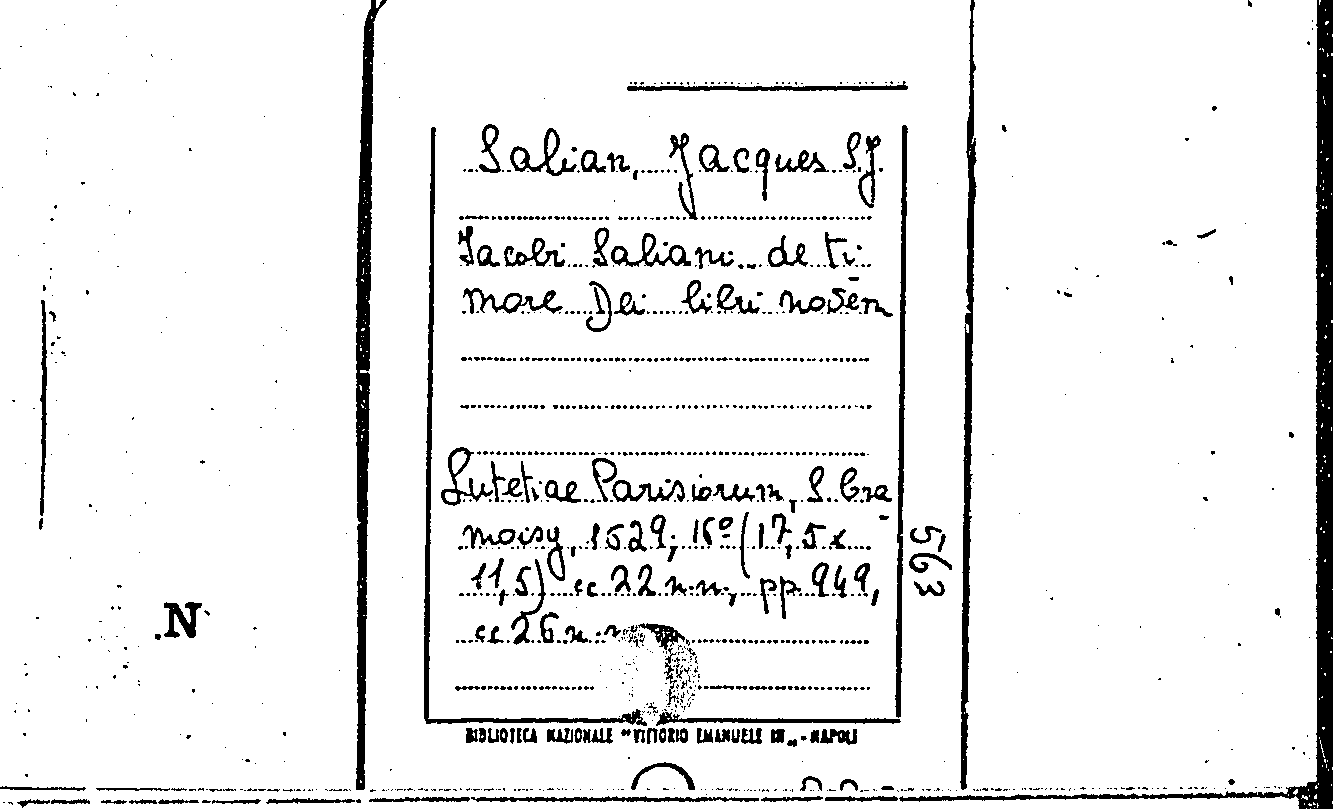 Salian, Jacques S.J.
Iacobi Saliani de ti-
more Dei libri novem
Lutetiae Parisiorum, S. Cra-
moisy, 1629; 16º (17,5 x
11,5) cc 22 n.n., pp 949,
cc 26 n.n
563
N
BIBLIOTECA NAZIONALE "VITTORIO EMANUELE III„ - NAPOLI